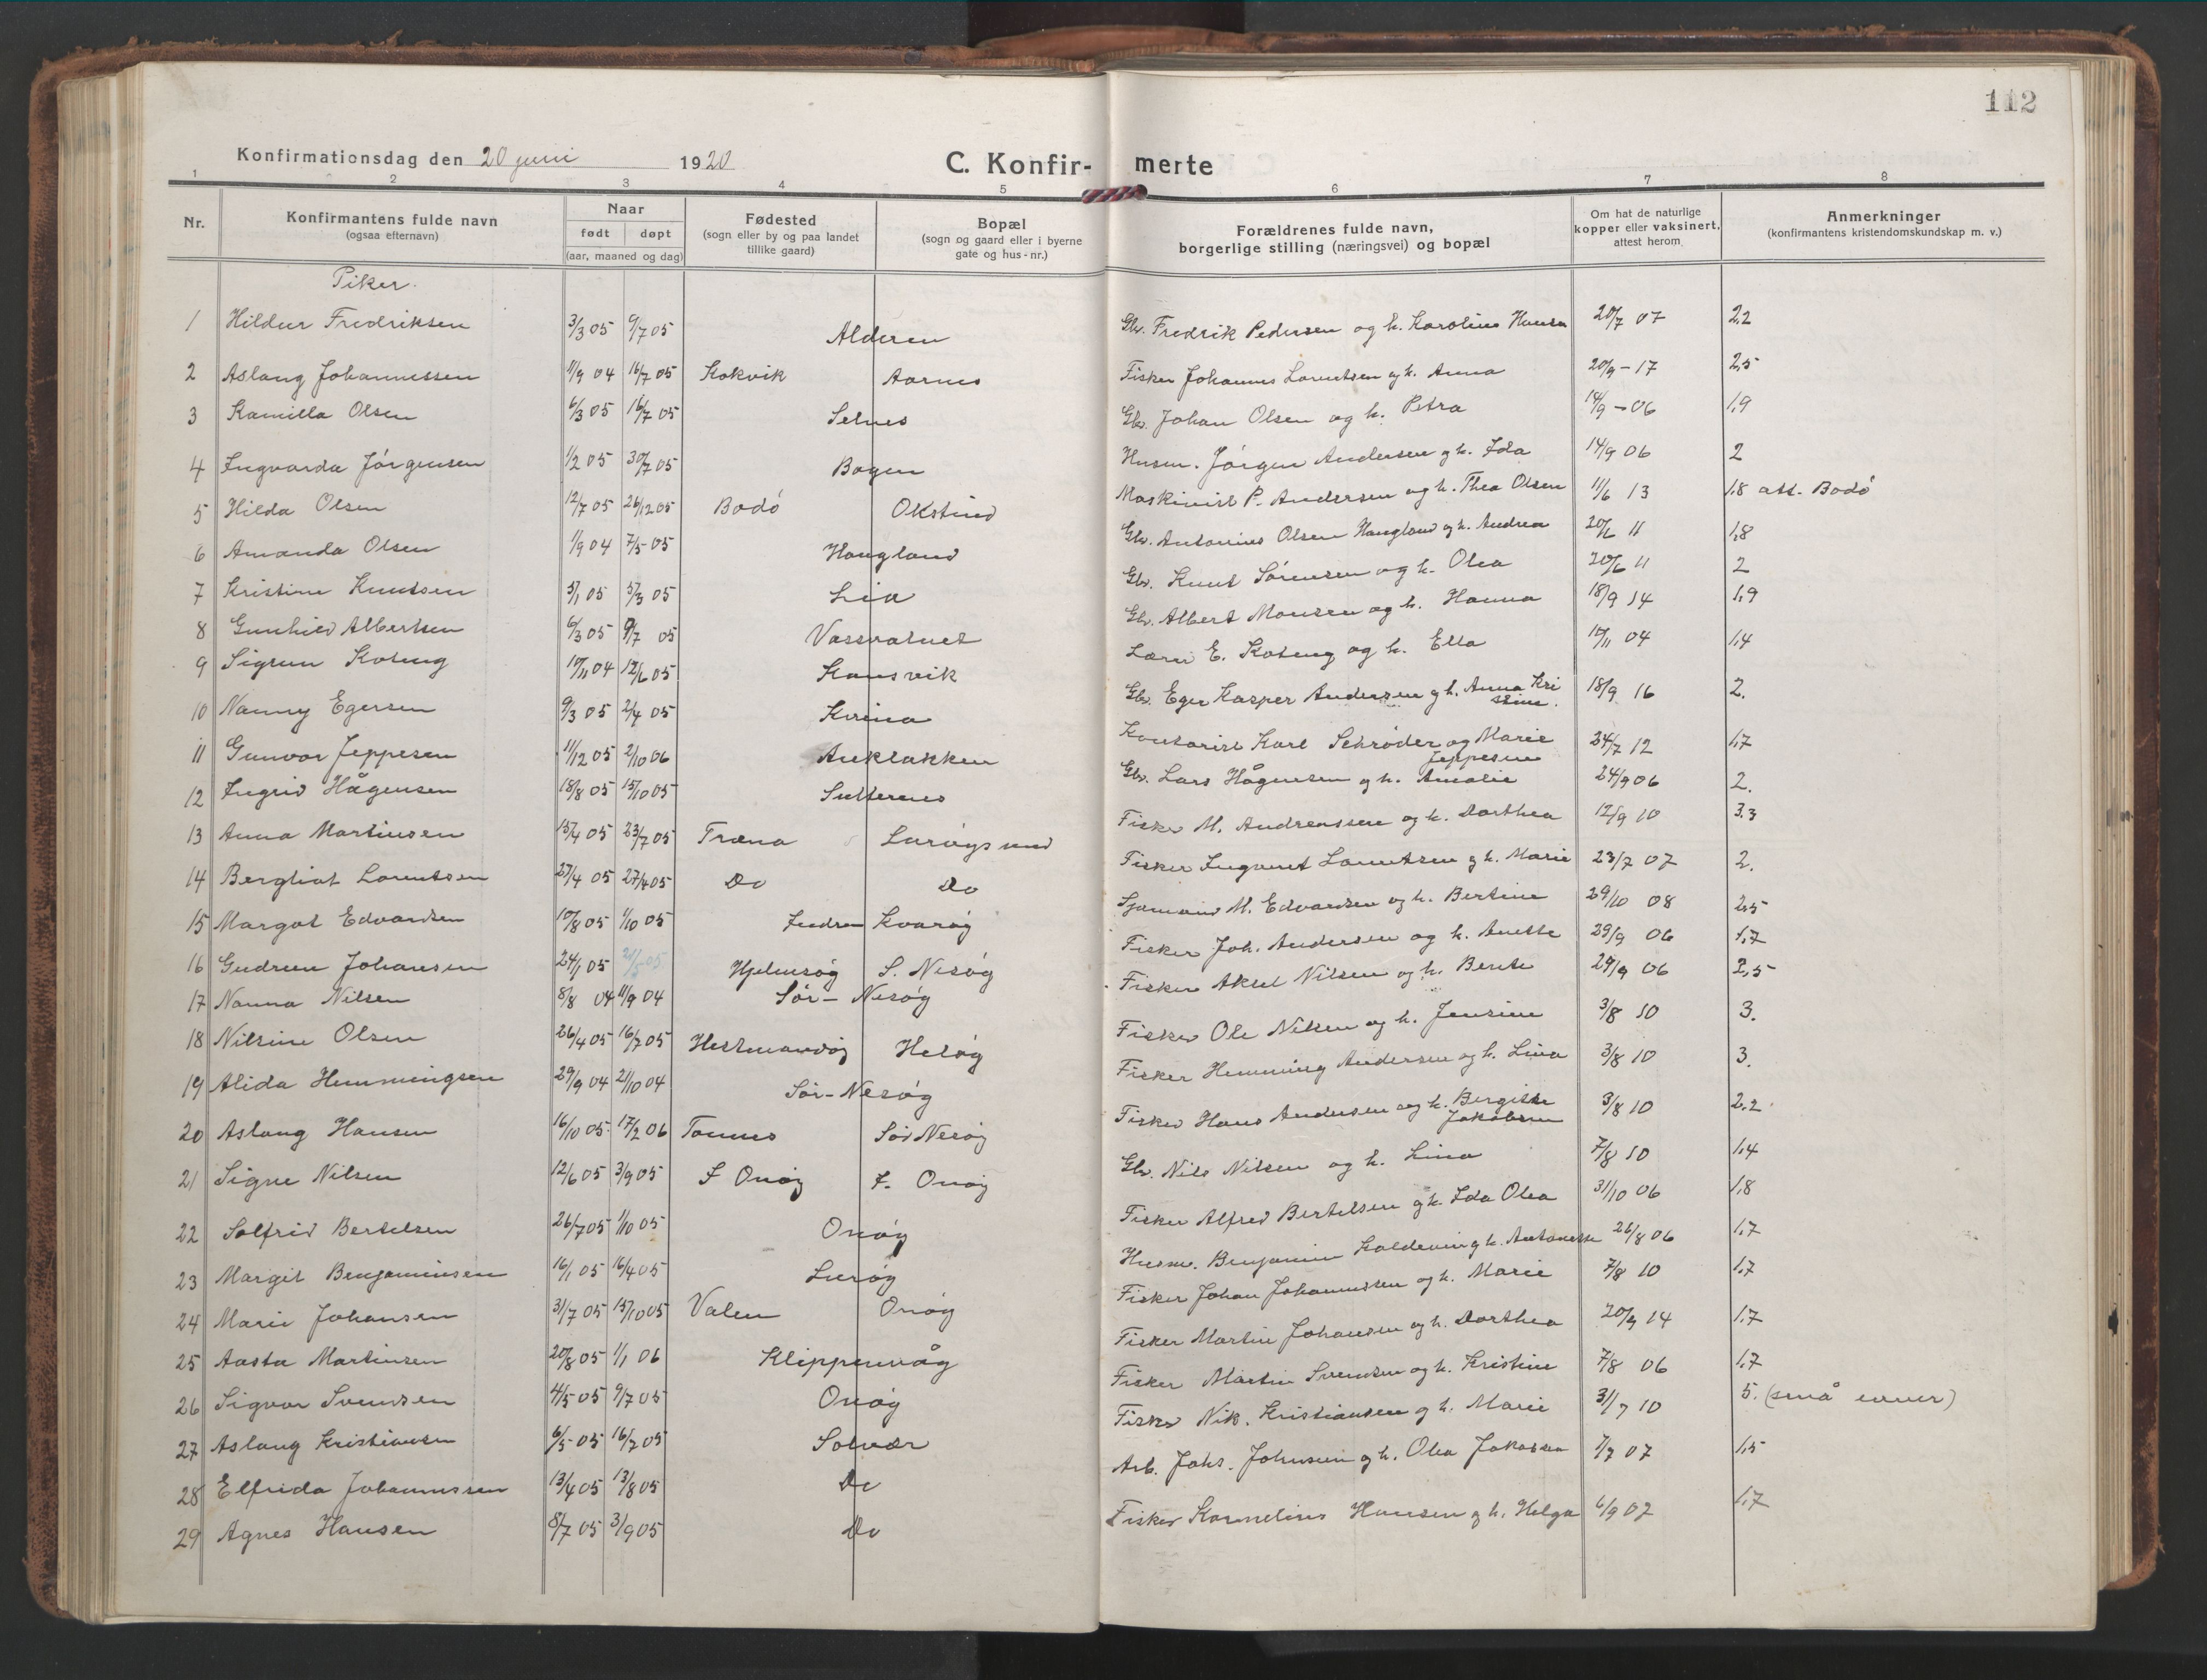 112
Konfirmationsdag den 20 juni 1920 C. Konfir- merte
1 2 3 4 5 6 7 8
Nr. Konfirmantens fulde navn (ogsaa efternavn) Naar født døpt (aar, maaned og dag) Fødested (sogn eller by og paa landet tillike gaard) Bopæl (sogn og gaard eller i byerne gate og hus-nr.) Forældrenes fulde navn, borgerlige stilling (næringsvei) og bopæl Om hat de naturlige kopper eller vaksinert, attest herom Anmerkninger (konfirmantens kristendomskundskap m. v.)
Piker.
1 Hildur Fredriksen 3/3 05 9/7 05 Alderen Gbr. Fredrik Pedersen og h. Karoline Hansen 20/7 07 2,2
2 Aslaug Johannessen 11/9 04 16/7 05 Kokvik Aarnes Fisker Johannes Lorentsen og h. Anna 20/9 - 17 2,5
3 Kamilla Olsen 6/3 05 16/7 05 Selnes Gbr. Johan Olsen og h. Petra 14/9 - 06 1,9
4 Ingvarda Jørgensen 1/2 05 30/7 05 Bogen Husm. Jørgen Andersen og h. Ida 14/9 06 2
5 Hilda Olsen 12/7 05 26/12 05 Bodø Okstind Maskinist P. Andersen og h. Thea Olsen 11/6 13 1,8 att. Bodø
6 Amanda Olsen 1/9 04 7/5 05 Haugland Gbr. Antonius Olsen Haugland og h. Andrea 20/6 11 1,8
7 Kristine Knutsen 3/1 05 5/3 05 Lia Gbr. Knut Sørensen og h. Olea 20/6 11 2
8 Gunhild Albertsen 6/3 05 9/7 05 Vassvatnet Gbr. Albert Monsen og h. Hanna 18/9 14 1,9
9 Sigrun Koteng 10/11 04 12/6 05 Konsvik Lærer E. Koteng og h. Ella 10/11 04 1,4
10 Nanny Egersen 9/3 05 2/4 05 Kvina Gbr. Eger Kasper Andersen og h. Anna Kristine. 18/9 16 2.
11 Gunvor Jeppesen 11/12 05 2/10 06 Auklakken Kontorist Karl Schrøder og Marie Jeppesen 24/7 12 1,7
12 Ingrid Hågensen 18/8 05 15/10 05 Sulterenes Gbr. Lars Hågensen og h. Amalie 24/9 06 2.
13 Anna Martinsen 15/4 05 23/7 05 Træna Lurøysund Fisker M. Andreassen og h. Dorthea 12/9 10 3.3
14 Bergliot Lorentsen 27/4 05 27/4 05 Do Do Fisker Ingvart Lorentsen og h. Marie 23/7 07 2.
15 Margot Edvardsen 10/8 05 1/10 05 Indre Kvarøy Sjømand M. Edvardsen og h. Bertine 29/10 08 2,5
16 Gudrun Johansen 24/1 05 21/5 05 Hjelmsøy S. Nesøy Fisker Joh. Andersen og h. Anette 29/9 06 1,7
17 Nanna Nilsen 8/8 04 11/9 04 Sør-Nesøy Fisker Aksel Nilsen og h. Berete 29/9 06 2,5
18 Nilsine Olsen 26/4 05 16/7 05 Hestmandøy Heløy Fisker Ole Nilsen og h. Jensine 3/8 10 3.
19 Alida Hemmingsen 29/9 04 21/10 04 Sør-Nesøy Fisker Hemming Andersen og h. Lina 3/8 10 3.
20 Aslaug Hansen 16/10 05 17/2 06 Tonnes Sør Nesøy Fisker Hans Andersen og h. Bergitte Jakobsen 3/8 10 2,2
21 Signe Nilsen 12/6 05 3/9 05 I Onøy I. Onøy Gbr. Nils Nilsen og h. Lina 7/8 10 1,4
22 Solfrid Bertelsen 26/7 05 1/10 05 Onøy Fisker Alfred Bertelsen og h. Ida Olea 31/10 06 1,8
23 Margit Benjaminsen 16/1 05 16/4 05 Lurøy Husm. Benjamin Koldevin og h. Antonette 26/8 06 1,7
24 Marie Johansen 31/7 05 15/10 05 Valen Onøy Fisker Johan Johannessen og h. Marie 7/8 10 1,7
25 Aasta Martinsen 20/8 05 1/1 06 Klippenvåg Fisker Martin Johansen og h. Dorthea 20/9 14 1,7
26 Sigvor Svendsen 4/5 05 9/7 05 Onøy Fisker Martin Svendsen og h. Kristine 7/8 06 1,7
27 Aslaug Kristiansen 6/5 05 16/7 05 Solvær Fisker Nik. Kristiansen og h. Marie 31/7 10 5. (små evner)
28 Elfrida Johannessen 13/4 05 13/8 05 Do Arb. Johs. Johnsen og h. Olea Jakobsen 7/7 07 1,5
29 Agnes Hansen 8/7 05 3/9 05 Do Fisker Kornelius Hansen og h. Helga 6/9 07 1,7